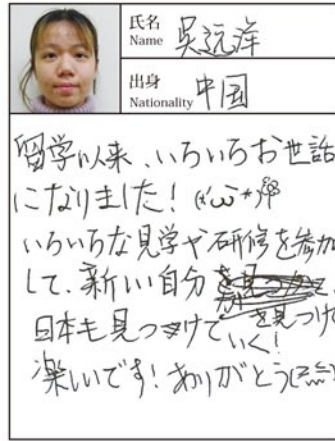 氏名
Name 吴远洋
出身
Nationality 中国
留学以来、いろいろお世話
になりました!
いろいろな見学や研修を参加
して、新しい自分を見つけて
日本も見つけていく!
楽しいです!ありがとう